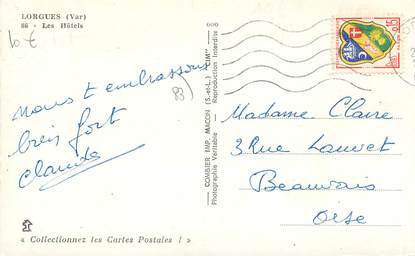 LORGUES (Var)
86 - Les Hôtels
10 €
nous t'embrassons
bien fort
Claude
83
600
COMBIER IMP. MACON (S.-et-L.) "CIM"
Photographie Véritable - Reproduction Interdite
Madame Claire
3 Rue Lauvet
Beauvais
Oise
0,15
« Collectionnez les Cartes Postales ! »